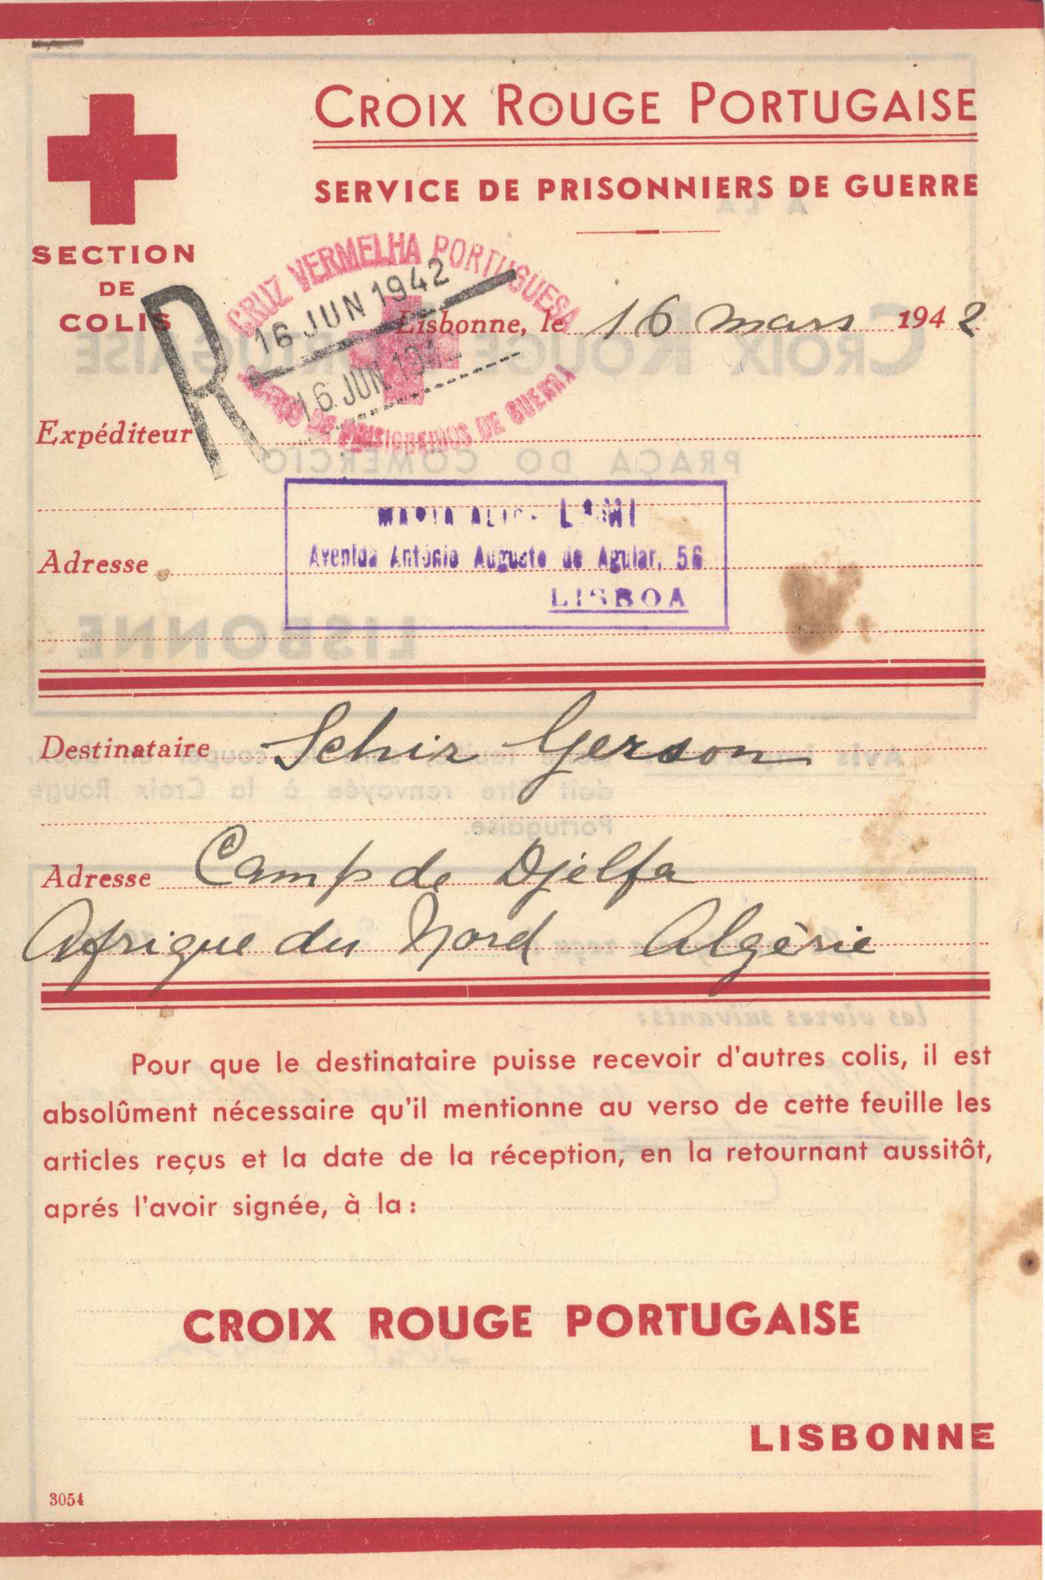 CROIX ROUGE PORTUGAISE
SERVICE DE PRISONNIERS DE GUERRE
SECTION
DE
COLIS
R
CRUZ VERMELHA PORTUGUESA
16 JUN 1942
16 JUN 194
DE PRISIONEIROS DE GUERRA
Lisbonne, le 16 mars 1942
Expéditeur
MARIA
Adresse
Avenida António Augusto de Aguiar, 56
LISBOA
Destinataire Schir Gerson
Adresse Camp de Djelfa
Afrique du Nord Algérie
Pour que le destinataire puisse recevoir d'autres colis, il est
absolûment nécessaire qu'il mentionne au verso de cette feuille les
articles reçus et la date de la réception, en la retournant aussitôt,
aprés l'avoir signée, à la:
CROIX ROUGE PORTUGAISE
LISBONNE
3054